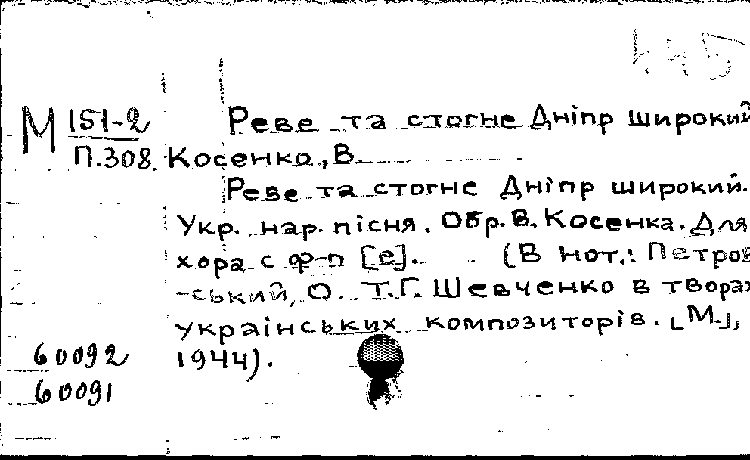 445
М 151-2 Реве та стогне Дніпр широкий
П.308. Косенко, В.
Реве та стогне Дніпр широкий.
Укр. нар. пісня. Обр. В. Косенка. Для
хора с ф-п [е]. (В нот.: Петров
-ський, О. Т.Г. Шевченко в творах
українських композиторів. [М.],
60092 1944).
60091